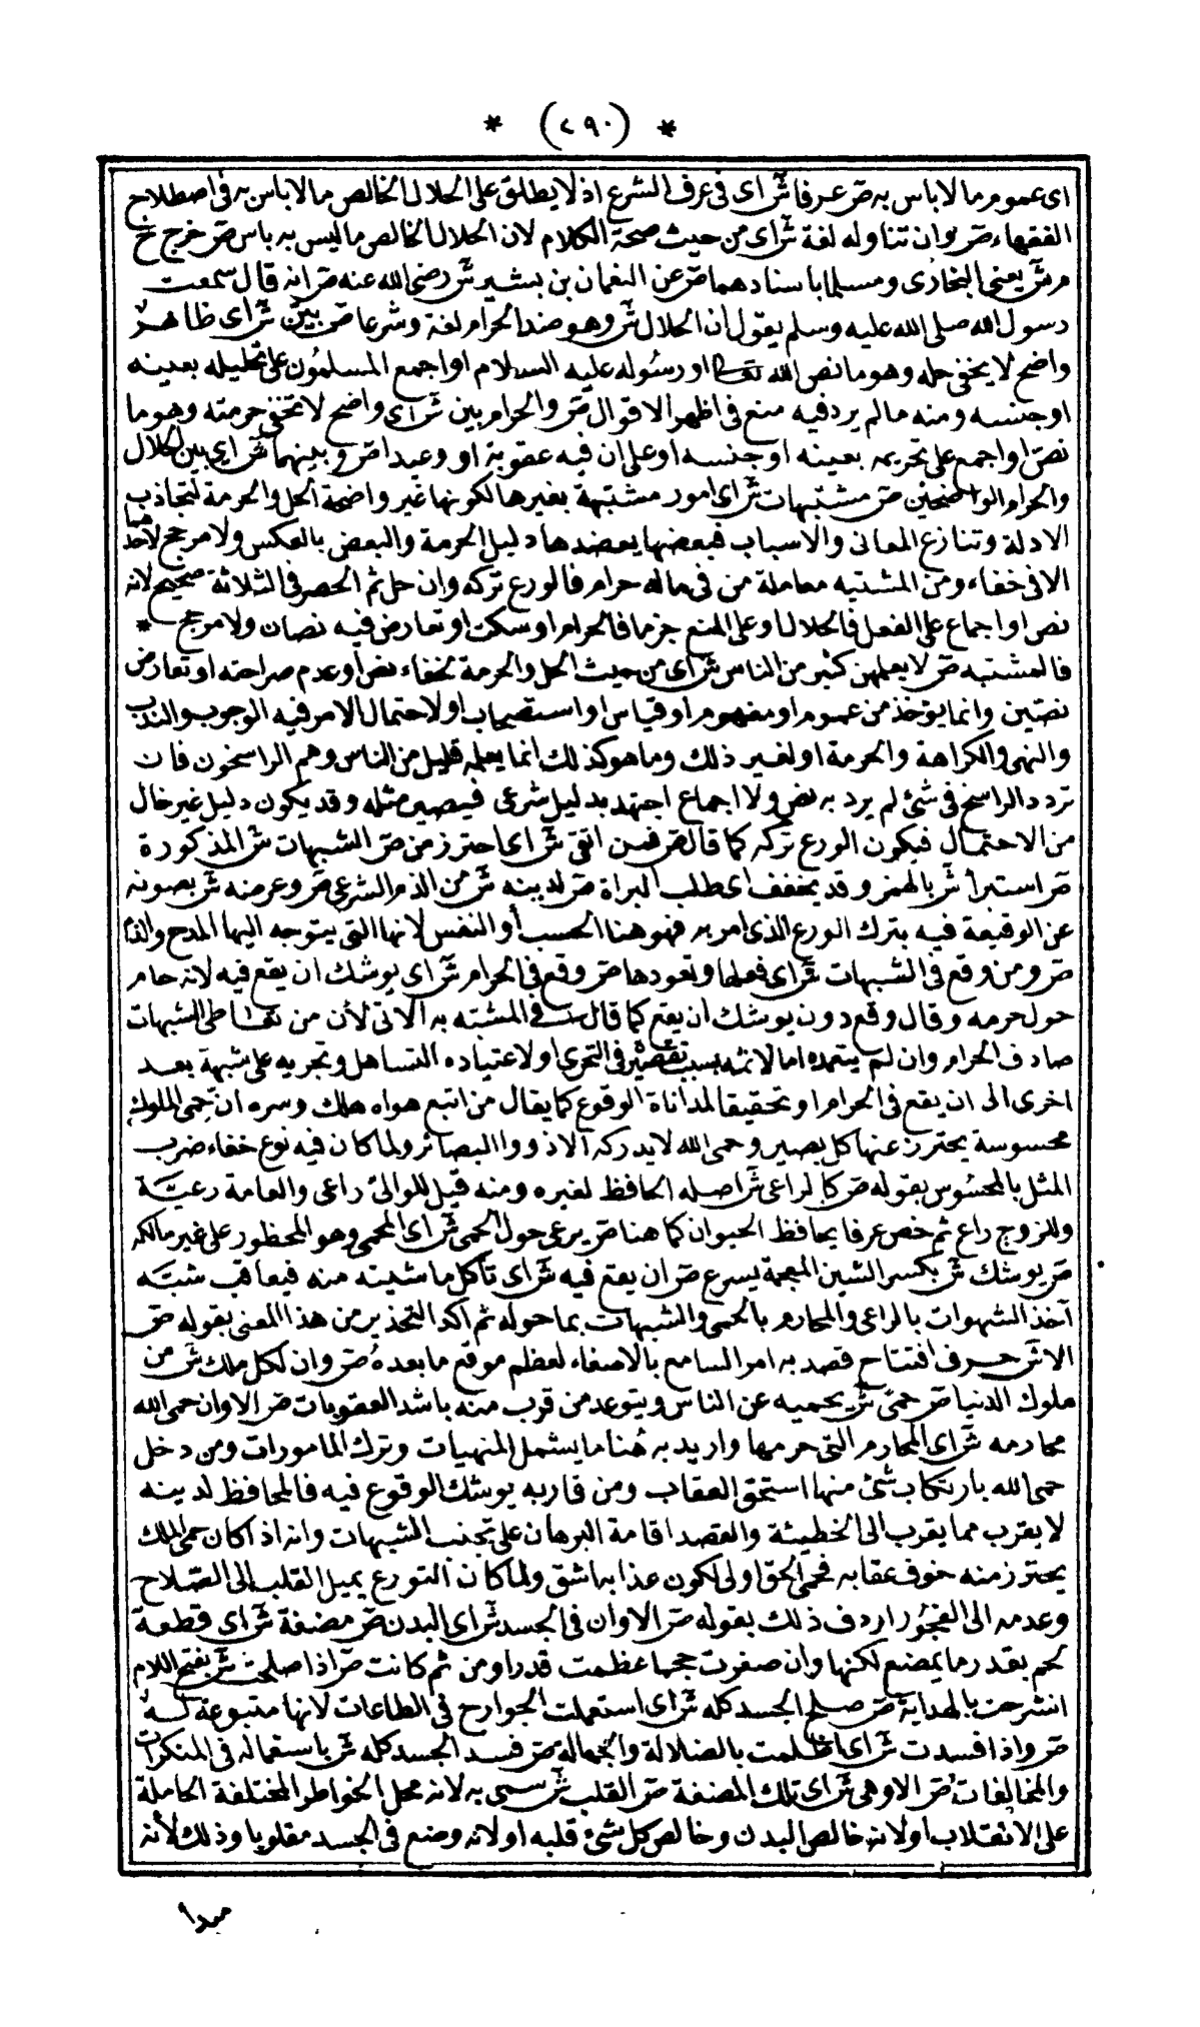 * (٢٩٠) *
اى عموم ما لا باس به صّ عرفا شّ اى فى عرف الشرع اذ لا يطلق على الحلال الخالص ما لا باس به فى اصطلاح
الفقهاء صّ وان تناوله لغة شّ اى من حيث صحة الكلام لان الحلال الخالص ما ليس به باس صّ خرج خ
م شّ يعنى البخارى ومسلما باسنادهما صّ عن النعمان بن بشير شّ رضى الله عنه صّ انه قال سمعت
رسول الله صلى الله عليه وسلم يقول ان الحلال شّ وهو ضد الحرام لغة وشرعا صّ بيّن شّ اى ظاهر
واضح لا يخفى حله وهو ما نص الله تعالى او رسوله عليه السلام او اجمع المسلمون على تحليله بعينه
او جنسه ومنه ما لم يرد فيه منع فى اظهر الاقوال صّ والحرام بين شّ اى واضح لا تخفى حرمته وهو ما
نص او اجمع على تحريمه بعينه او جنسه او على ان فيه عقوبة او وعيدا صّ وبينهما شّ اى بين الحلال
والحرام الواضحين صّ مشتبهات شّ اى امور مشتبهة بغيرها لكونها غير واضحة الحل والحرمة لتجاذب
الادلة وتنازع المعانى والاسباب فبعضها يعضدها دليل الحرمة والبعض بالعكس ولا مرجح لاحدهما
الا فى خفاء ومن المشتبه معاملة من فى ماله حرام فالورع تركه وان حل ثم الحصر فى الثلاثة صحيح لانه
نص او اجماع على الفعل فالحلال او على المنع جزما فالحرام او سكت او تعارض فيه نصان ولا مرجح *
فالمشتبه صّ لا يعلمهن كثير من الناس شّ اى من حيث الحل والحرمة لخفاء نص او عدم صراحته او تعارض
نصين وانما يوخذ من عموم او مفهوم او قياس او استصحاب او لاحتمال الامر فيه الوجوب والندب
والنهى والكراهة والحرمة او لغير ذلك وما هو كذلك انما يعلمه قليل من الناس وهم الراسخون فان
تردد الراسخ فى شئ لم يرد به نص ولا اجماع اجتهد بدليل شرعى فيصير مثله وقد يكون دليل غير خال
من الاحتمال فيكون الورع تركه كما قال صّ فمن اتقى شّ اى احترز من صّ الشبهات شّ المذكورة
صّ استبرأ شّ بالهمز وقد يخفف اى طلب البراة صّ لدينه شّ من الذم الشرعى صّ وعرضه شّ بصونه
عن الوقيعة فيه بترك الورع الذى امر به فهو هنا الحسب أو النفس لانها التى يتوجه اليها المدح والذم
صّ ومن وقع فى الشبهات شّ اى فعلها وتعودها صّ وقع فى الحرام شّ اى يوشك ان يقع فيه لانه حام
حول حرمه وقال وقع دون يوشك ان يقع كما قال فى المشتبه به الآتى لأن من تعاطى الشبهات
صادف الحرام وان لم يتعمده اما لاثمه بسبب تقصيره فى التحرى او لاعتياده التساهل وتجريه على شبهة بعد
اخرى الى ان يقع فى الحرام او تحقيقا لمداناة الوقوع كما يقال من اتبع هواه هلك وسره ان حمى الملوك
محسوسة يحترز عنها كل بصير وحمى الله لا يدركه الا ذووا البصائر ولما كان فيه نوع خفاء ضرب
المثل بالمحسوس بقوله صّ كالراعى شّ اصله الحافظ لغيره ومنه قيل للوالى راعى والعامة رعية
وللزوج راع ثم خص عرفا بحافظ الحيوان كما هنا صّ يرعى حول الحمى شّ اى المحمى وهو المحظور على غير مالكه
صّ يوشك شّ بكسر الشين المعجمة يسرع صّ ان يقع فيه شّ اى تأكل ماشيته منه فيعاقب شبّه
آخذ الشهوات بالراعى والمحارم بالحمى والشبهات بما حوله ثم اكد التحذير من هذا المعنى بقوله صّ
الا شّ حرف افتتاح قصد به امر السامع بالاصغاء لعظم موقع ما بعده صّ وان لكل ملك شّ من
ملوك الدنيا صّ حمى شّ يحميه عن الناس ويتوعد من قرب منه باشد العقوبات صّ الا وان حمى الله
محارمه شّ اى المحارم التى حرمها واريد به هنا ما يشمل المنهيات وترك المامورات ومن دخل
حمى الله بارتكاب شئ منها استحق العقاب ومن قاربه يوشك الوقوع فيه فالمحافظ لدينه
لا يقرب مما يقرب الى الخطيئة والقصد اقامة البرهان على تجنب الشبهات وانه اذا كان حمى الملك
يحترز منه خوف عقابه فحمى الحق اولى لكون عذابه اشق ولما كان التورع يميل القلب الى الصلاح
وعدمه الى الفجور اردف ذلك بقوله صّ الا وان فى الجسد شّ اى البدن صّ مضغة شّ اى قطعة
لحم بقدر ما يمضغ لكنها وان صغرت حجما عظمت قدرا ومن ثم كانت صّ اذا صلحت شّ بفتح اللام
انشرحت بالهداية صّ صلح الجسد كله شّ اى استعملت الجوارح فى الطاعات لانها متبوعة له
صّ واذا فسدت شّ اى اظلمت بالضلالة والجهالة صّ فسد الجسد كله شّ باستعماله فى المنكرات
والمخالفات صّ الا وهى شّ اى تلك المضغة صّ القلب شّ سمى به لانه محل الخواطر المختلفة الحاملة
على الانقلاب او لانه خالص البدن وخالص كل شئ قلبه او لانه وضع فى الجسد مقلوبا وذلك لأنه
مبدا